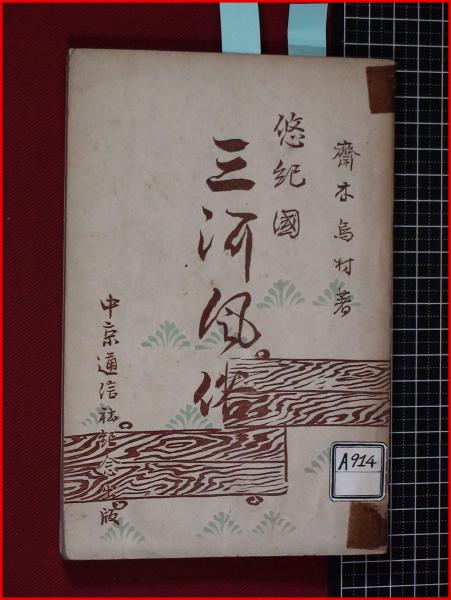 齋木烏村著
悠紀國
三河風俗
中京通信社記念出版
A914